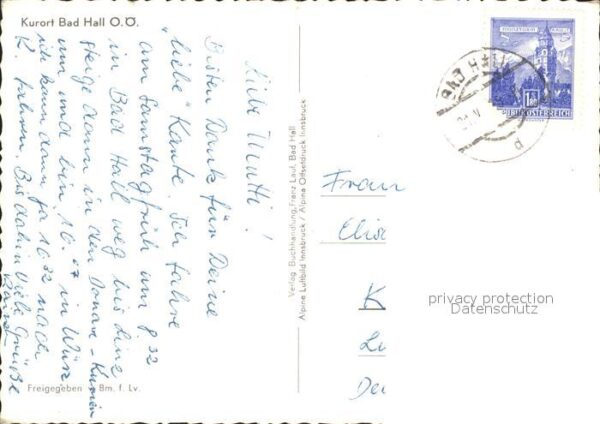 Kurort Bad Hall O.Ö.
Liebe Mutti!
Besten Dank für Deine
"liebe" Karte. Ich fahre
am Samstag früh um 8 32
in Bad Hall weg bis Linz
steige dann in den Donau-Kurier
um und bin 16.07 in Würz
ich kann dann ja 16 32 nach
K. fahren. Bis dahin viele Grüße
Freigegeben Bm. f. Lv.
Verlag: Buchhandlung Franz Lauf, Bad Hall
Alpine Luftbild Innsbruck / Alpine Offsetdruck Innsbruck
BAD HALL
REPUBLIK ÖSTERREICH
Frau
Elis
K
Deu
privacy protection
Datenschutz